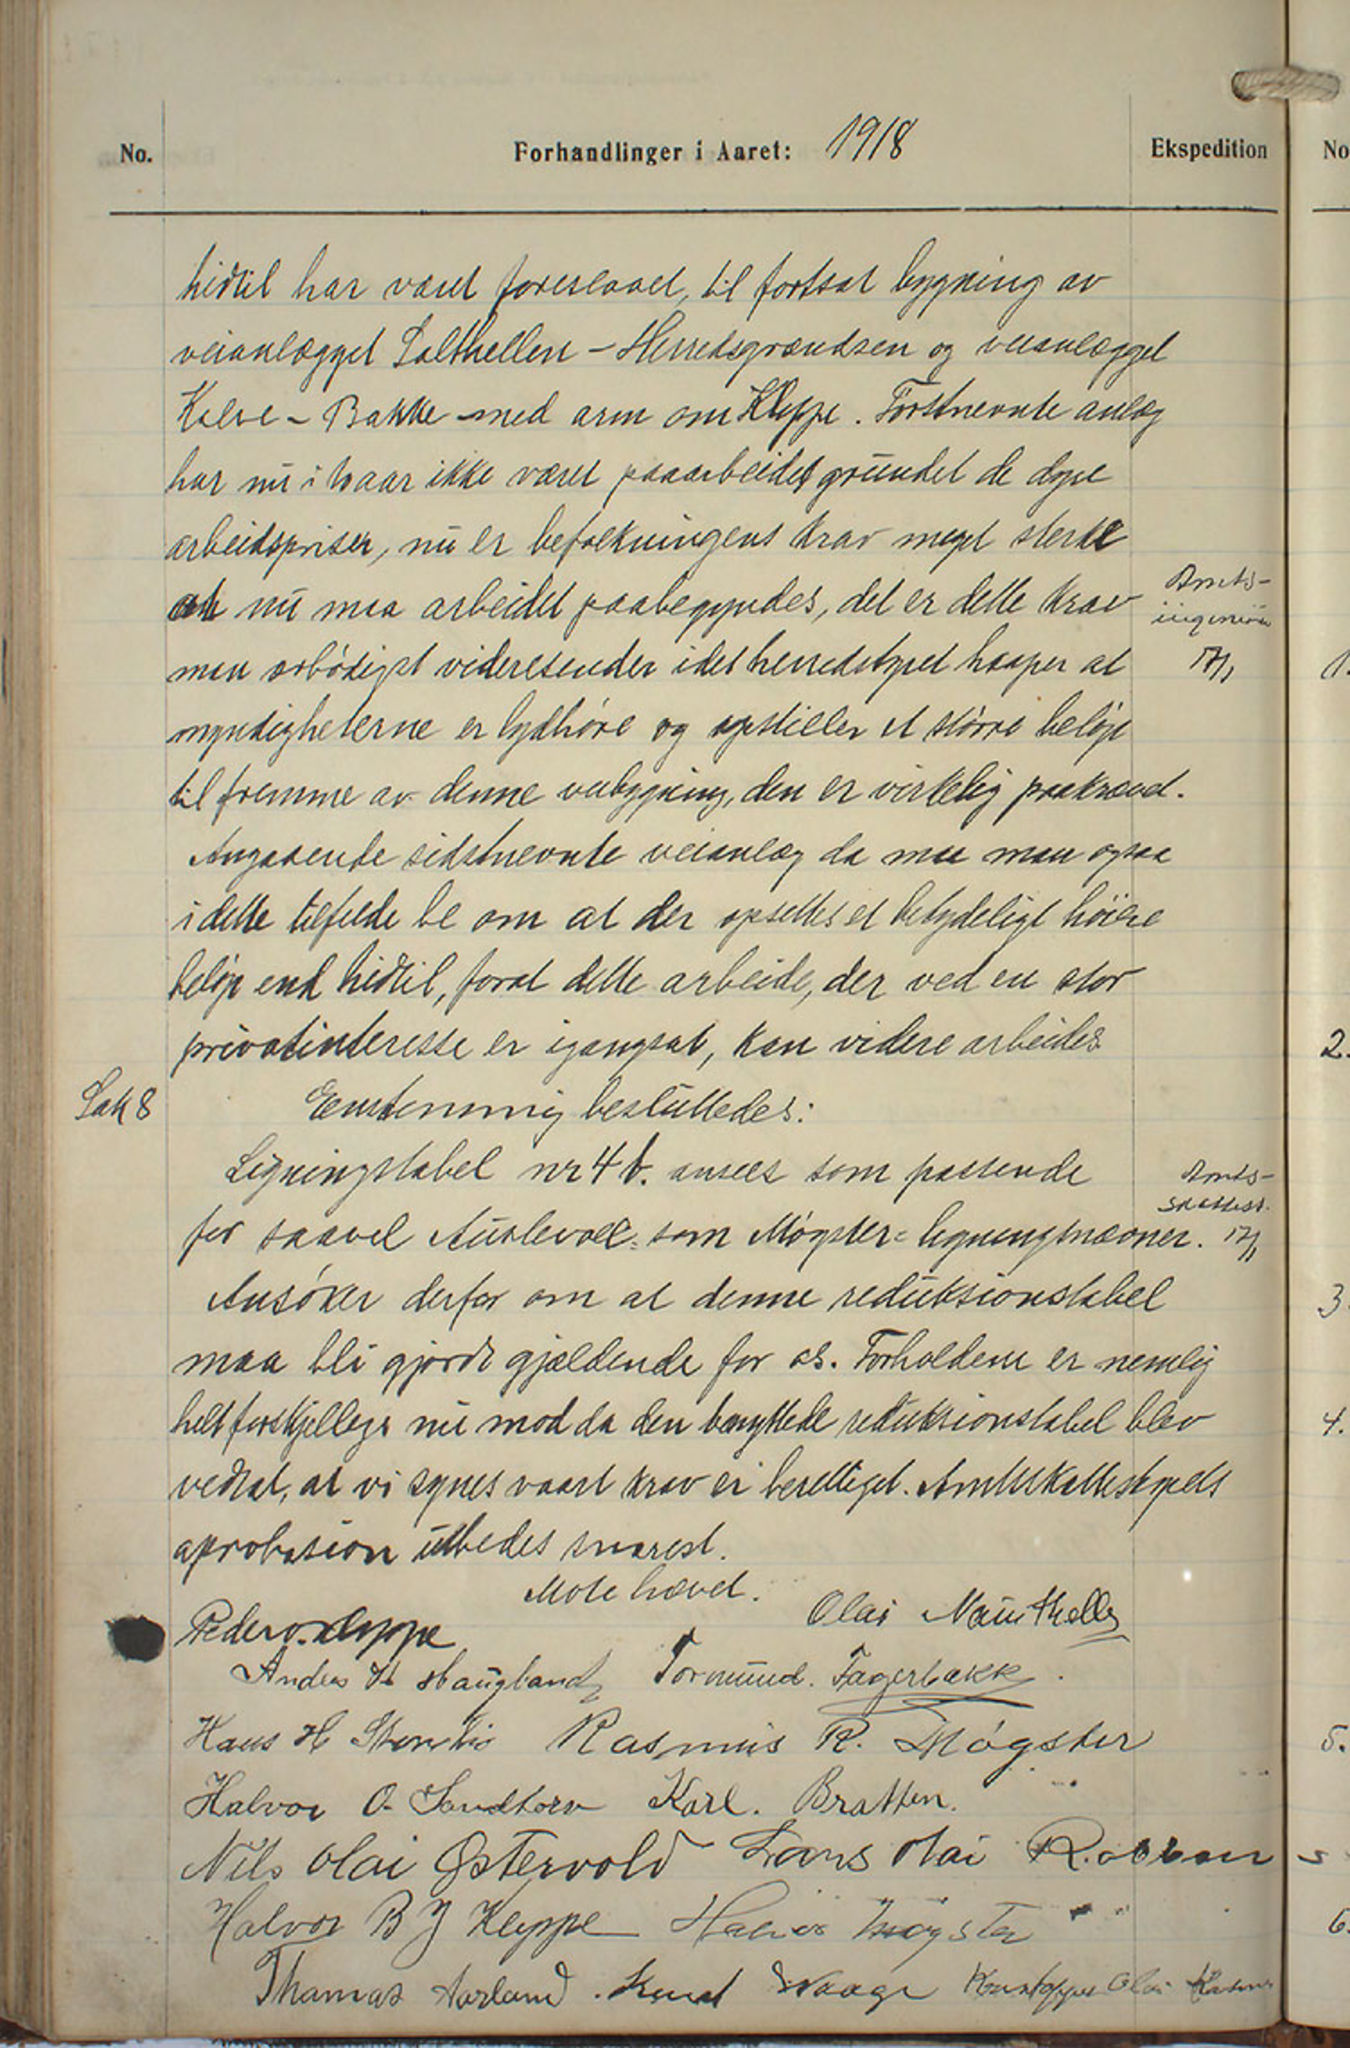 No. Forhandlinger i Aaret: 1918 Ekspedition No
hidtil har været foreslaaet, til fortsat bygning av
veianlægget Salthellen - Herredsgrændsen og veianlægget
Kolve - Bakke - med arm om Kleppe. Førstnevnte anlæg
har nu i to aar ikke været paaarbeidet grundet de dyre
arbeidspriser, nu er befolkningens krav meget sterke
at nu maa arbeidet paabegyndes, det er dette krav
Amts-
ingeniør
17/1
man ærbødigst videresender idet herredstyret haaper at
1.
myndigheterne er lydhøre og opstiller et større beløp
til fremme av denne veibygning, den er virkelig paakrævd.
Angaaende sidstnevnte veianlæg da maa man ogsaa
i dette tilfelde be om at der opsettes et betydeligt høiere
beløp end hidtil, forat dette arbeide, der ved en stor
privatinteresse er igangsat, kan videre arbeides
2.
Sak 8 Eenstemmig besluttedes:
Ligningstabel nr 4 b. ansees som passende
Amts-
skattest.
17/1
for saavel Austevoll- som Møgster- ligningsnævner.
Ansøker derfor om at denne reduksionstabel
3.
maa bli gjordt gjældende for os. Forholdene er nemlig
helt forskjellige nu mod da den benyttede reduksionstabel blev
4.
vedtat, at vi synes vaart krav er berettiget. Amtsskattestyrets
aprobasion utbedes snarest.
Møte hævet.
Peder O. Kleppe Olai Naustheller
Anders H Haugland Tormund. Fagerbakk.
Hans H Rasmus R. Møgster
5.
Halvor O. Sandtorv Karl. Bratten.
Nils Olai Østervold Lars Olai
Halvor B J Kleppe Møgster
6.
Thomas Aarland. Knut Waage Olai